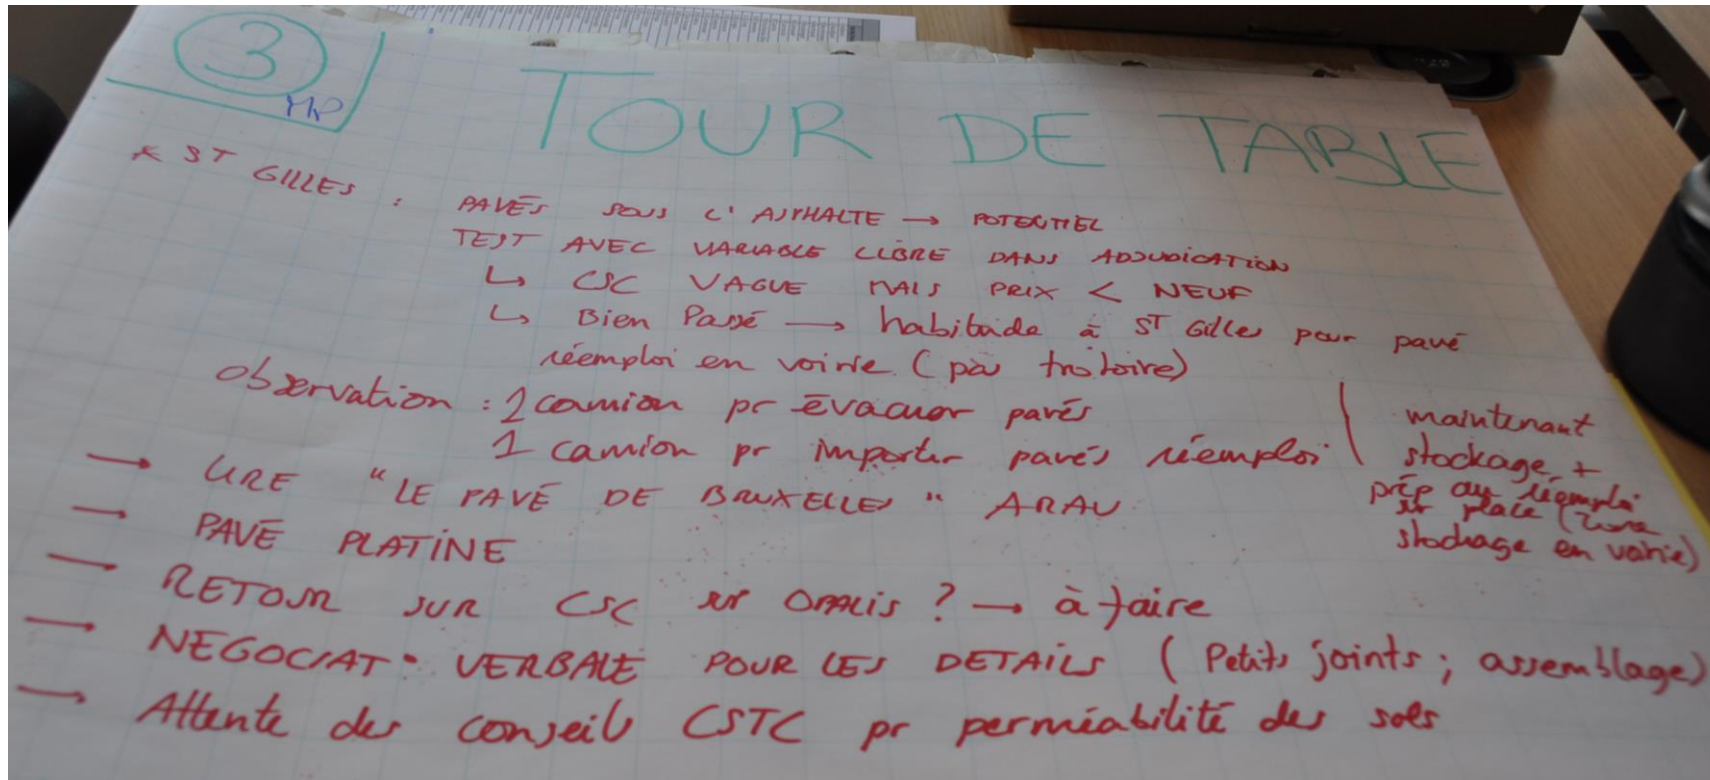 3
MP
TOUR DE TABLE
* ST GILLES : PAVÉS SOUS L'ASPHALTE → POTENTIEL
TEST AVEC VARIABLE LIBRE DANS ADJUDICATION
↳ CSC VAGUE MAIS PRIX < NEUF
↳ Bien Passé → habitude à ST Gilles pour pavé
réemploi en voirie (pas trotoire)
observation : 1 camion pr évacuer pavés
1 camion pr importer pavés réemploi
maintenant
stockage +
prép au réemploi
sur place (zone
stockage en voirie)
→ LIRE "LE PAVÉ DE BRUXELLES" ARAU
→ PAVÉ PLATINE
→ RETOUR SUR CSC sur OPALIS ? → à faire
→ NEGOCIAT° VERBALE POUR LES DETAILS (Petits joints ; assemblage)
→ Attente des conseils CSTC pr perméabilité des sols